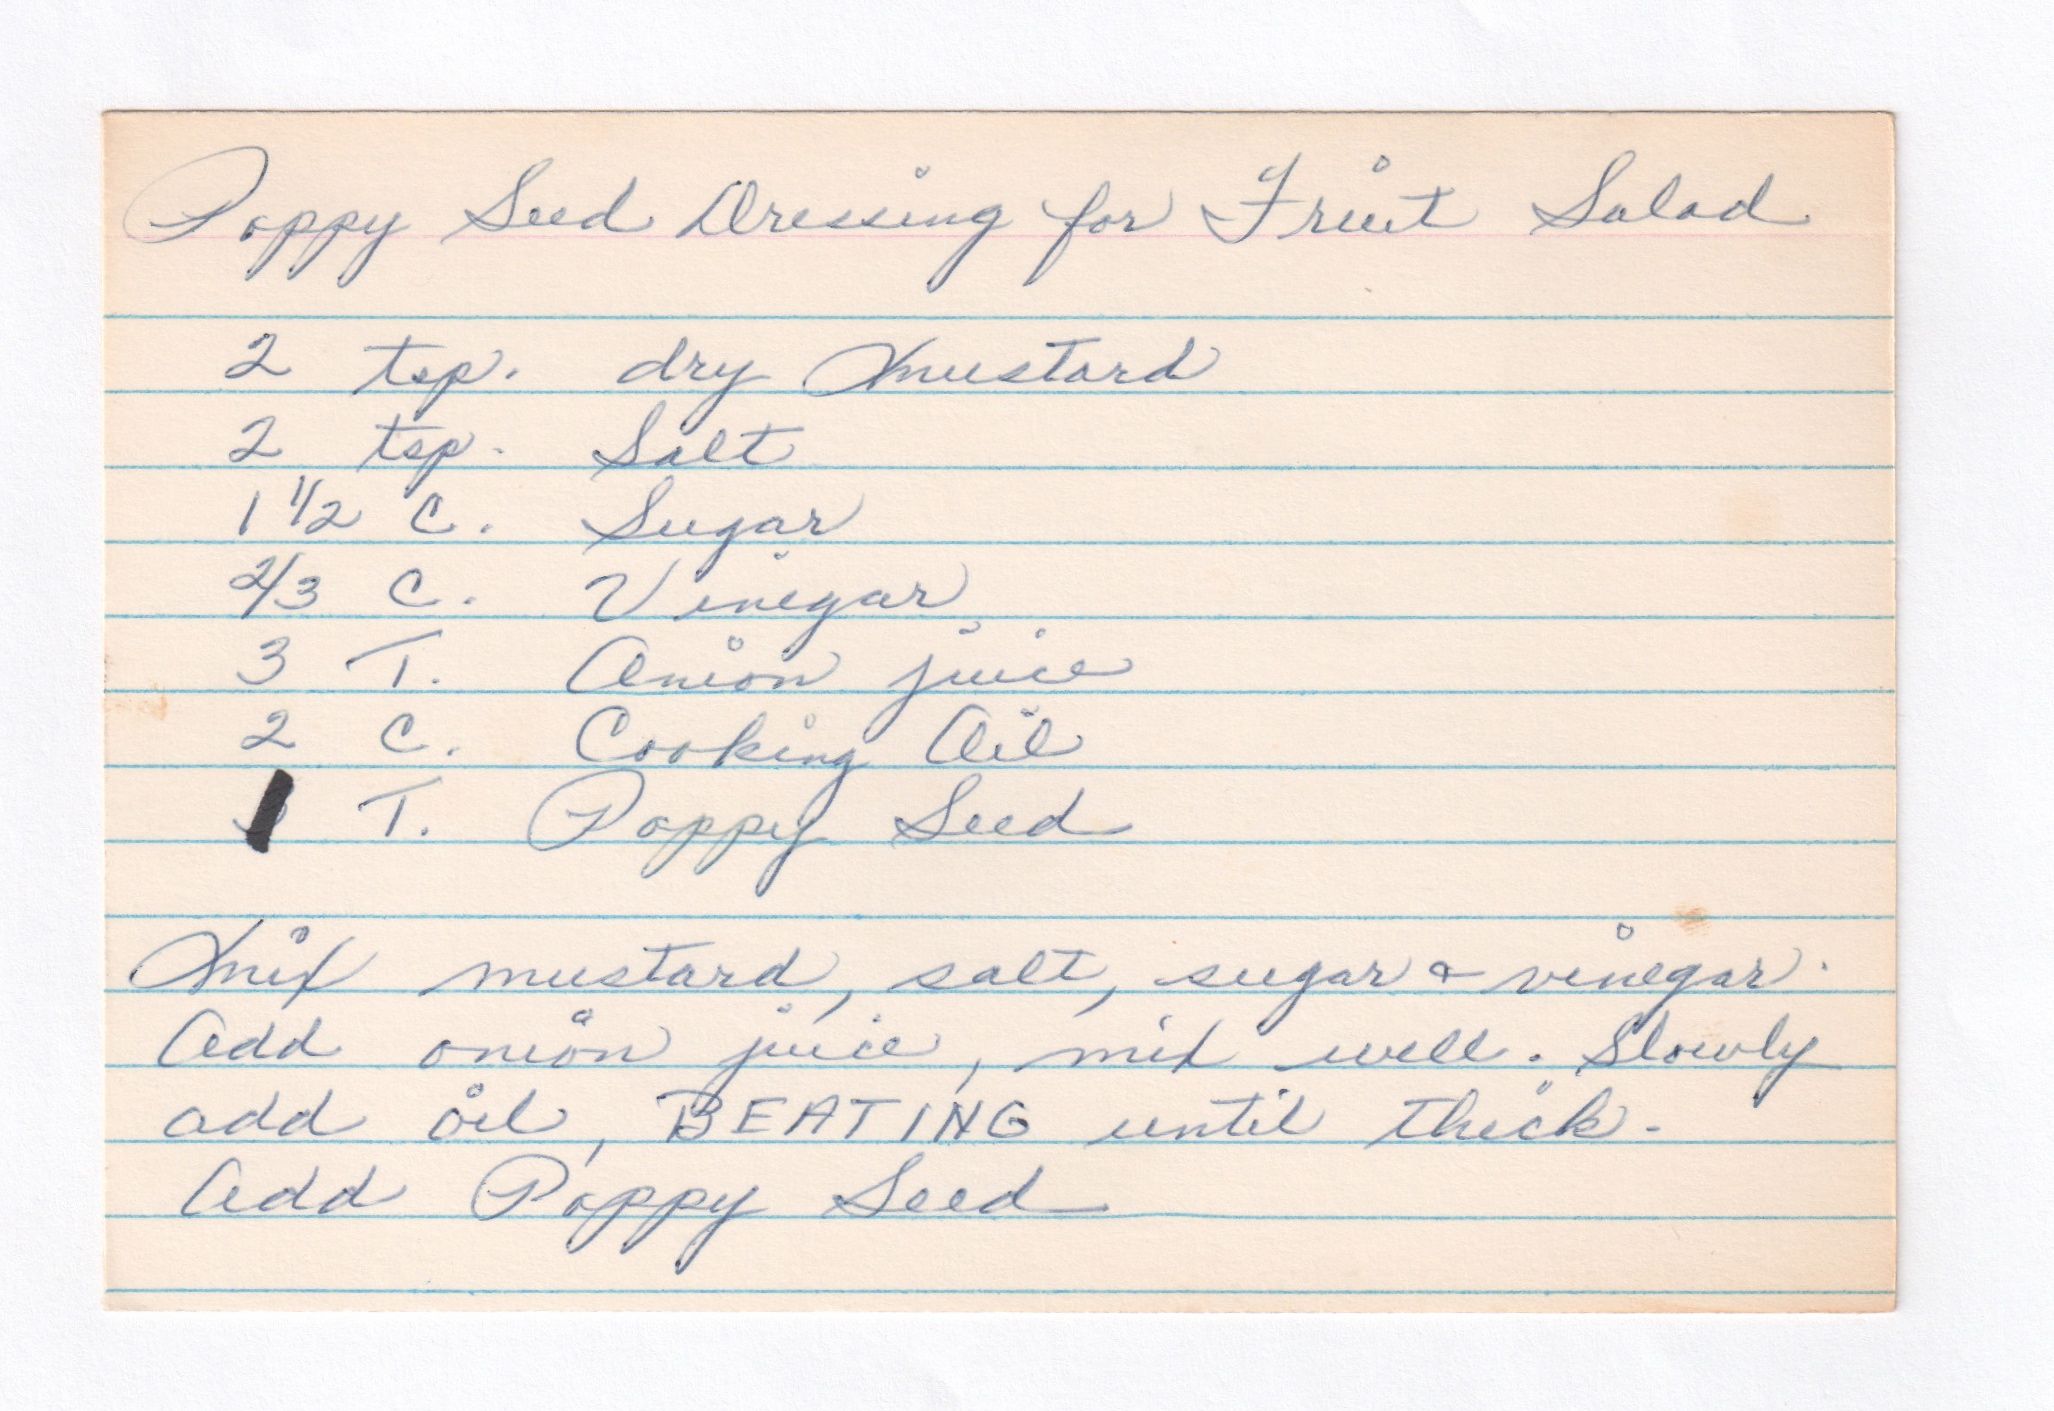 Poppy Seed Dressing for Fruit Salad
2 tsp. dry Mustard
2 tsp. Salt
1 1/2 C. Sugar
2/3 C. Vinegar
3 T. Onion juice
2 C. Cooking Oil
1 T. Poppy Seed
Mix mustard, salt, sugar & vinegar.
Add onion juice, mix well. Slowly
add oil, BEATING until thick.
Add Poppy Seed